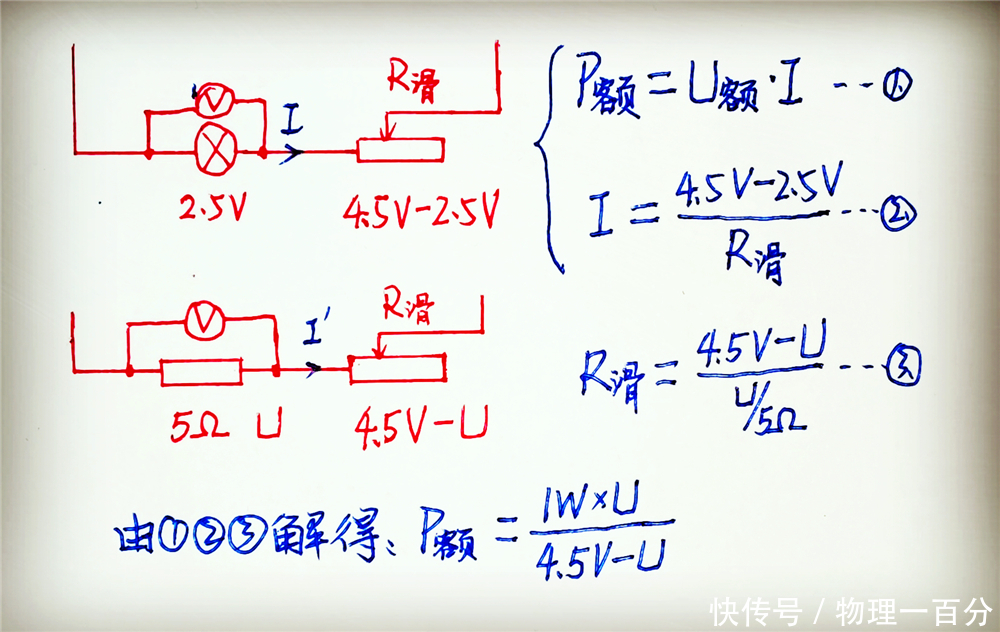 R滑
V
I
2.5V
4.5V-2.5V
P额=U额·I ---①
I=4.5V-2.5V/R滑 ---②
R滑
V
I'
5Ω U
4.5V-U
R滑=4.5V-U/U/5Ω ---③
由①②③解得:P额=1W×U/4.5V-U
快传号/物理一百分